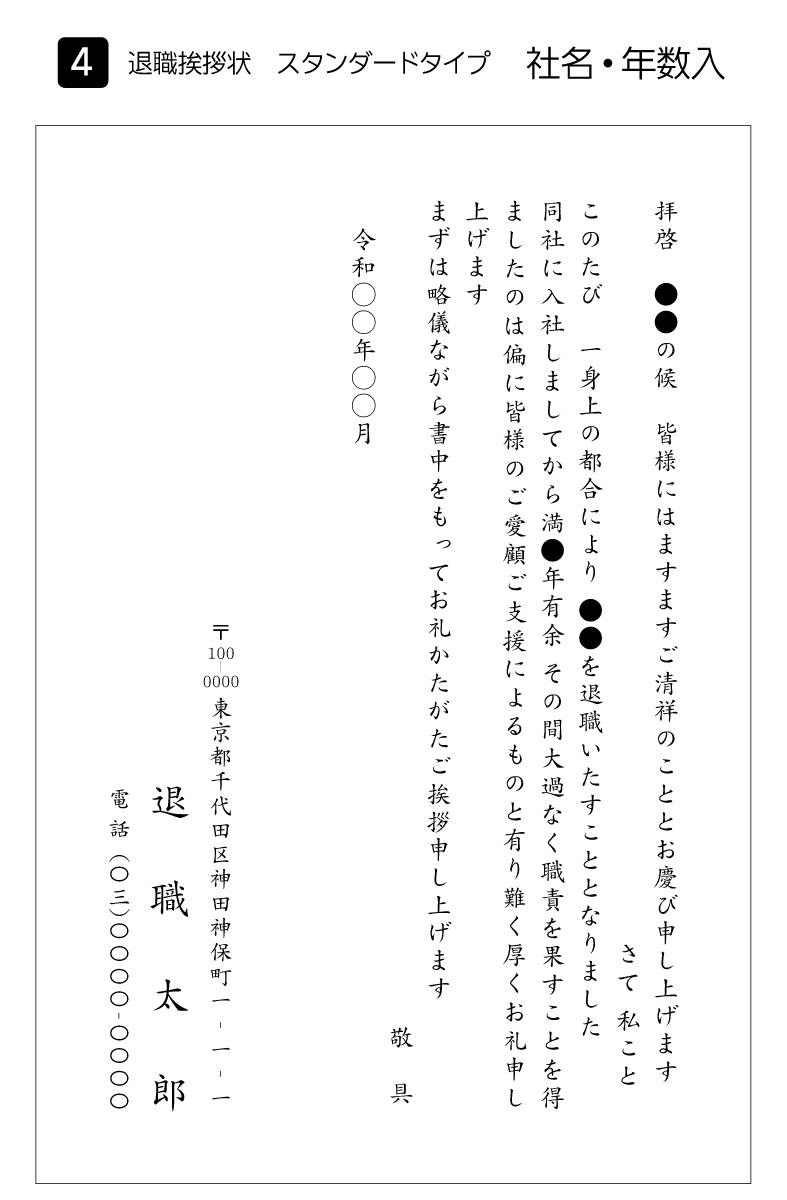 4 退職挨拶状　スタンダードタイプ　社名・年数入
拝啓　●●の候　皆様にはますますご清祥のこととお慶び申し上げます
さて 私こと
このたび　一身上の都合により ●●を退職いたすこととなりました
同社に入社しましてから満●年有余 その間大過なく職責を果すことを得
ましたのは偏に皆様のご愛顧ご支援によるものと有り難く厚くお礼申し
上げます
まずは略儀ながら書中をもってお礼かたがたご挨拶申し上げます
敬　具
令和〇〇年〇〇月
〒100-0000 東京都千代田区神田神保町一-一-一
退　職　太　郎
電話（〇三）〇〇〇〇-〇〇〇〇